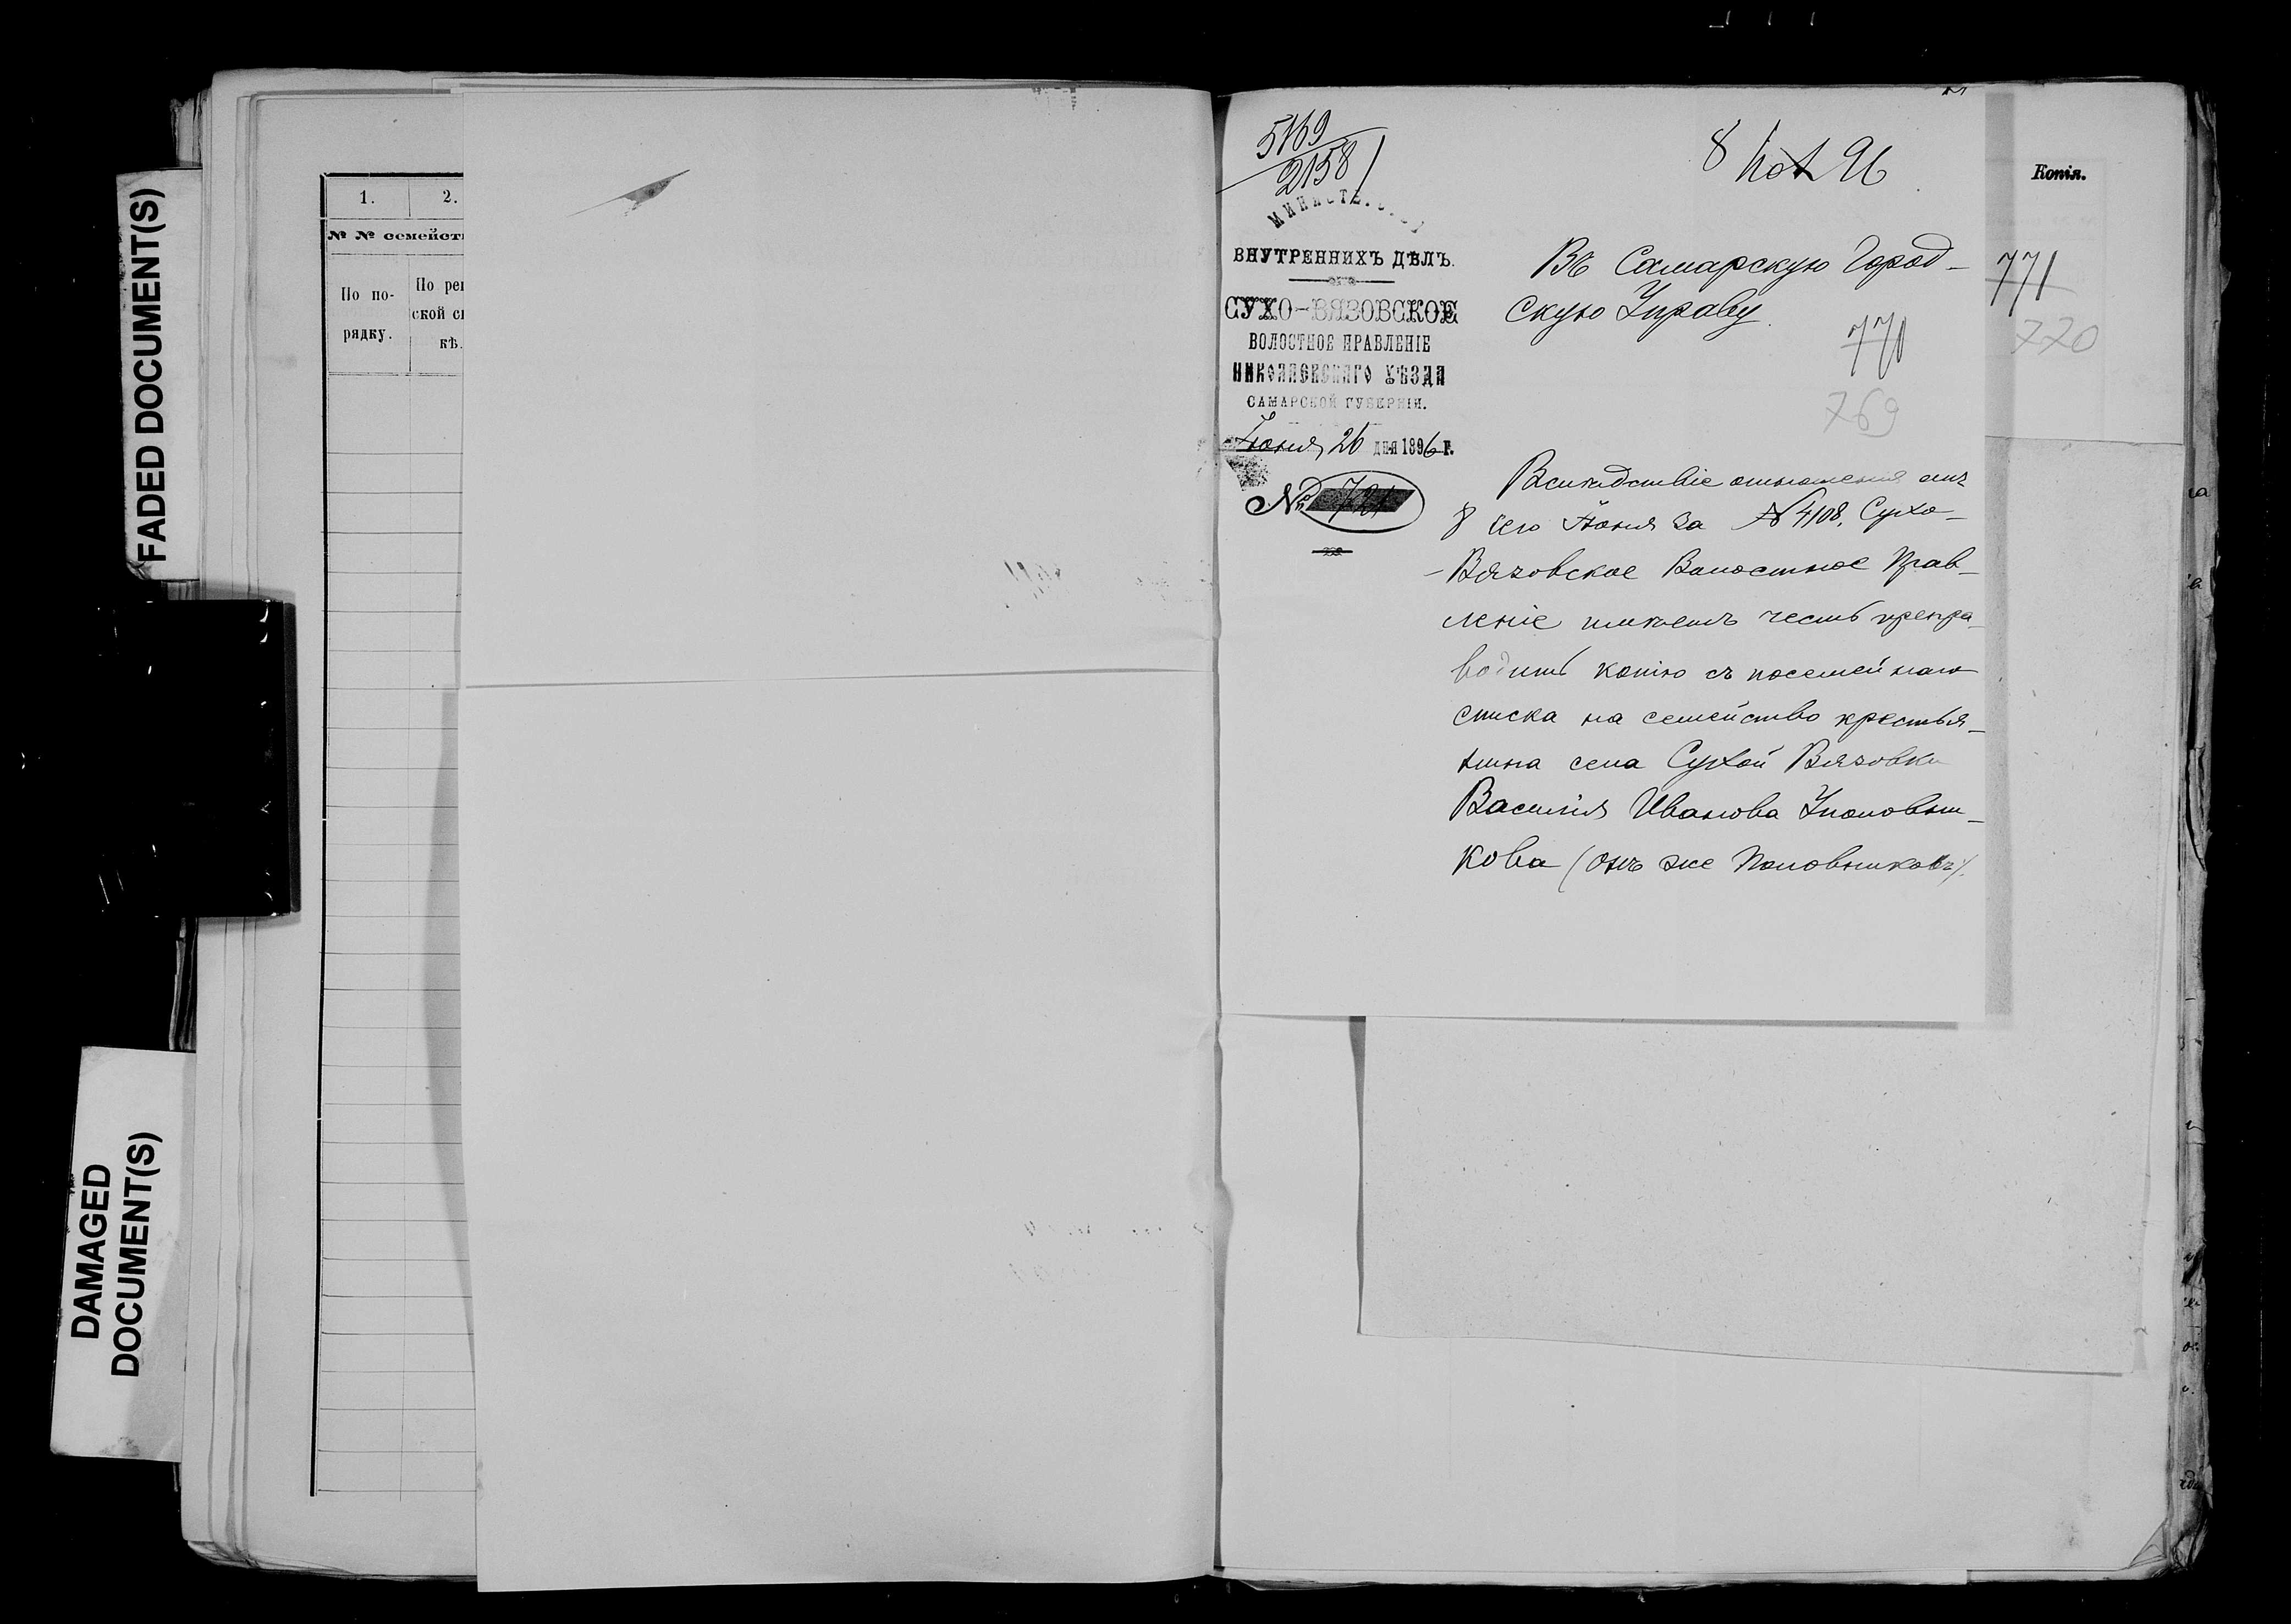 FADED DOCUMENT(S)
DAMAGED
DOCUMENT(S)
1. 2.
№ № семейст
По по-
рядку.
По рев
ской сп
кѣ.
5169
2158
8 96
МИНИСТЕ
ВНУТРЕННИХЪ ДѢЛЪ.
СУХО-ВЯЗОВСКОЕ
ВОЛОСТНОЕ ПРАВЛЕНІЕ
НИКОЛАЕВСКАГО УѢЗДА
САМАРСКОЙ ГУБЕРНІИ.
Іюня 26 дня 1896 г.
№ 721
Въ Самарскую Город-
скую Управу.
770
769
Вслѣдствіе отношенія отъ
8 сего Іюня за № 4108, Сухо-
-Вязовское Волостное Прав-
леніе имѣетъ честь препро-
водить копію съ посемейнаго
списка на семейство крестья-
нина села Сухой Вязовки
Василія Иванова Уполовни-
кова (онъ же Половниковъ).
Копія.
771
770